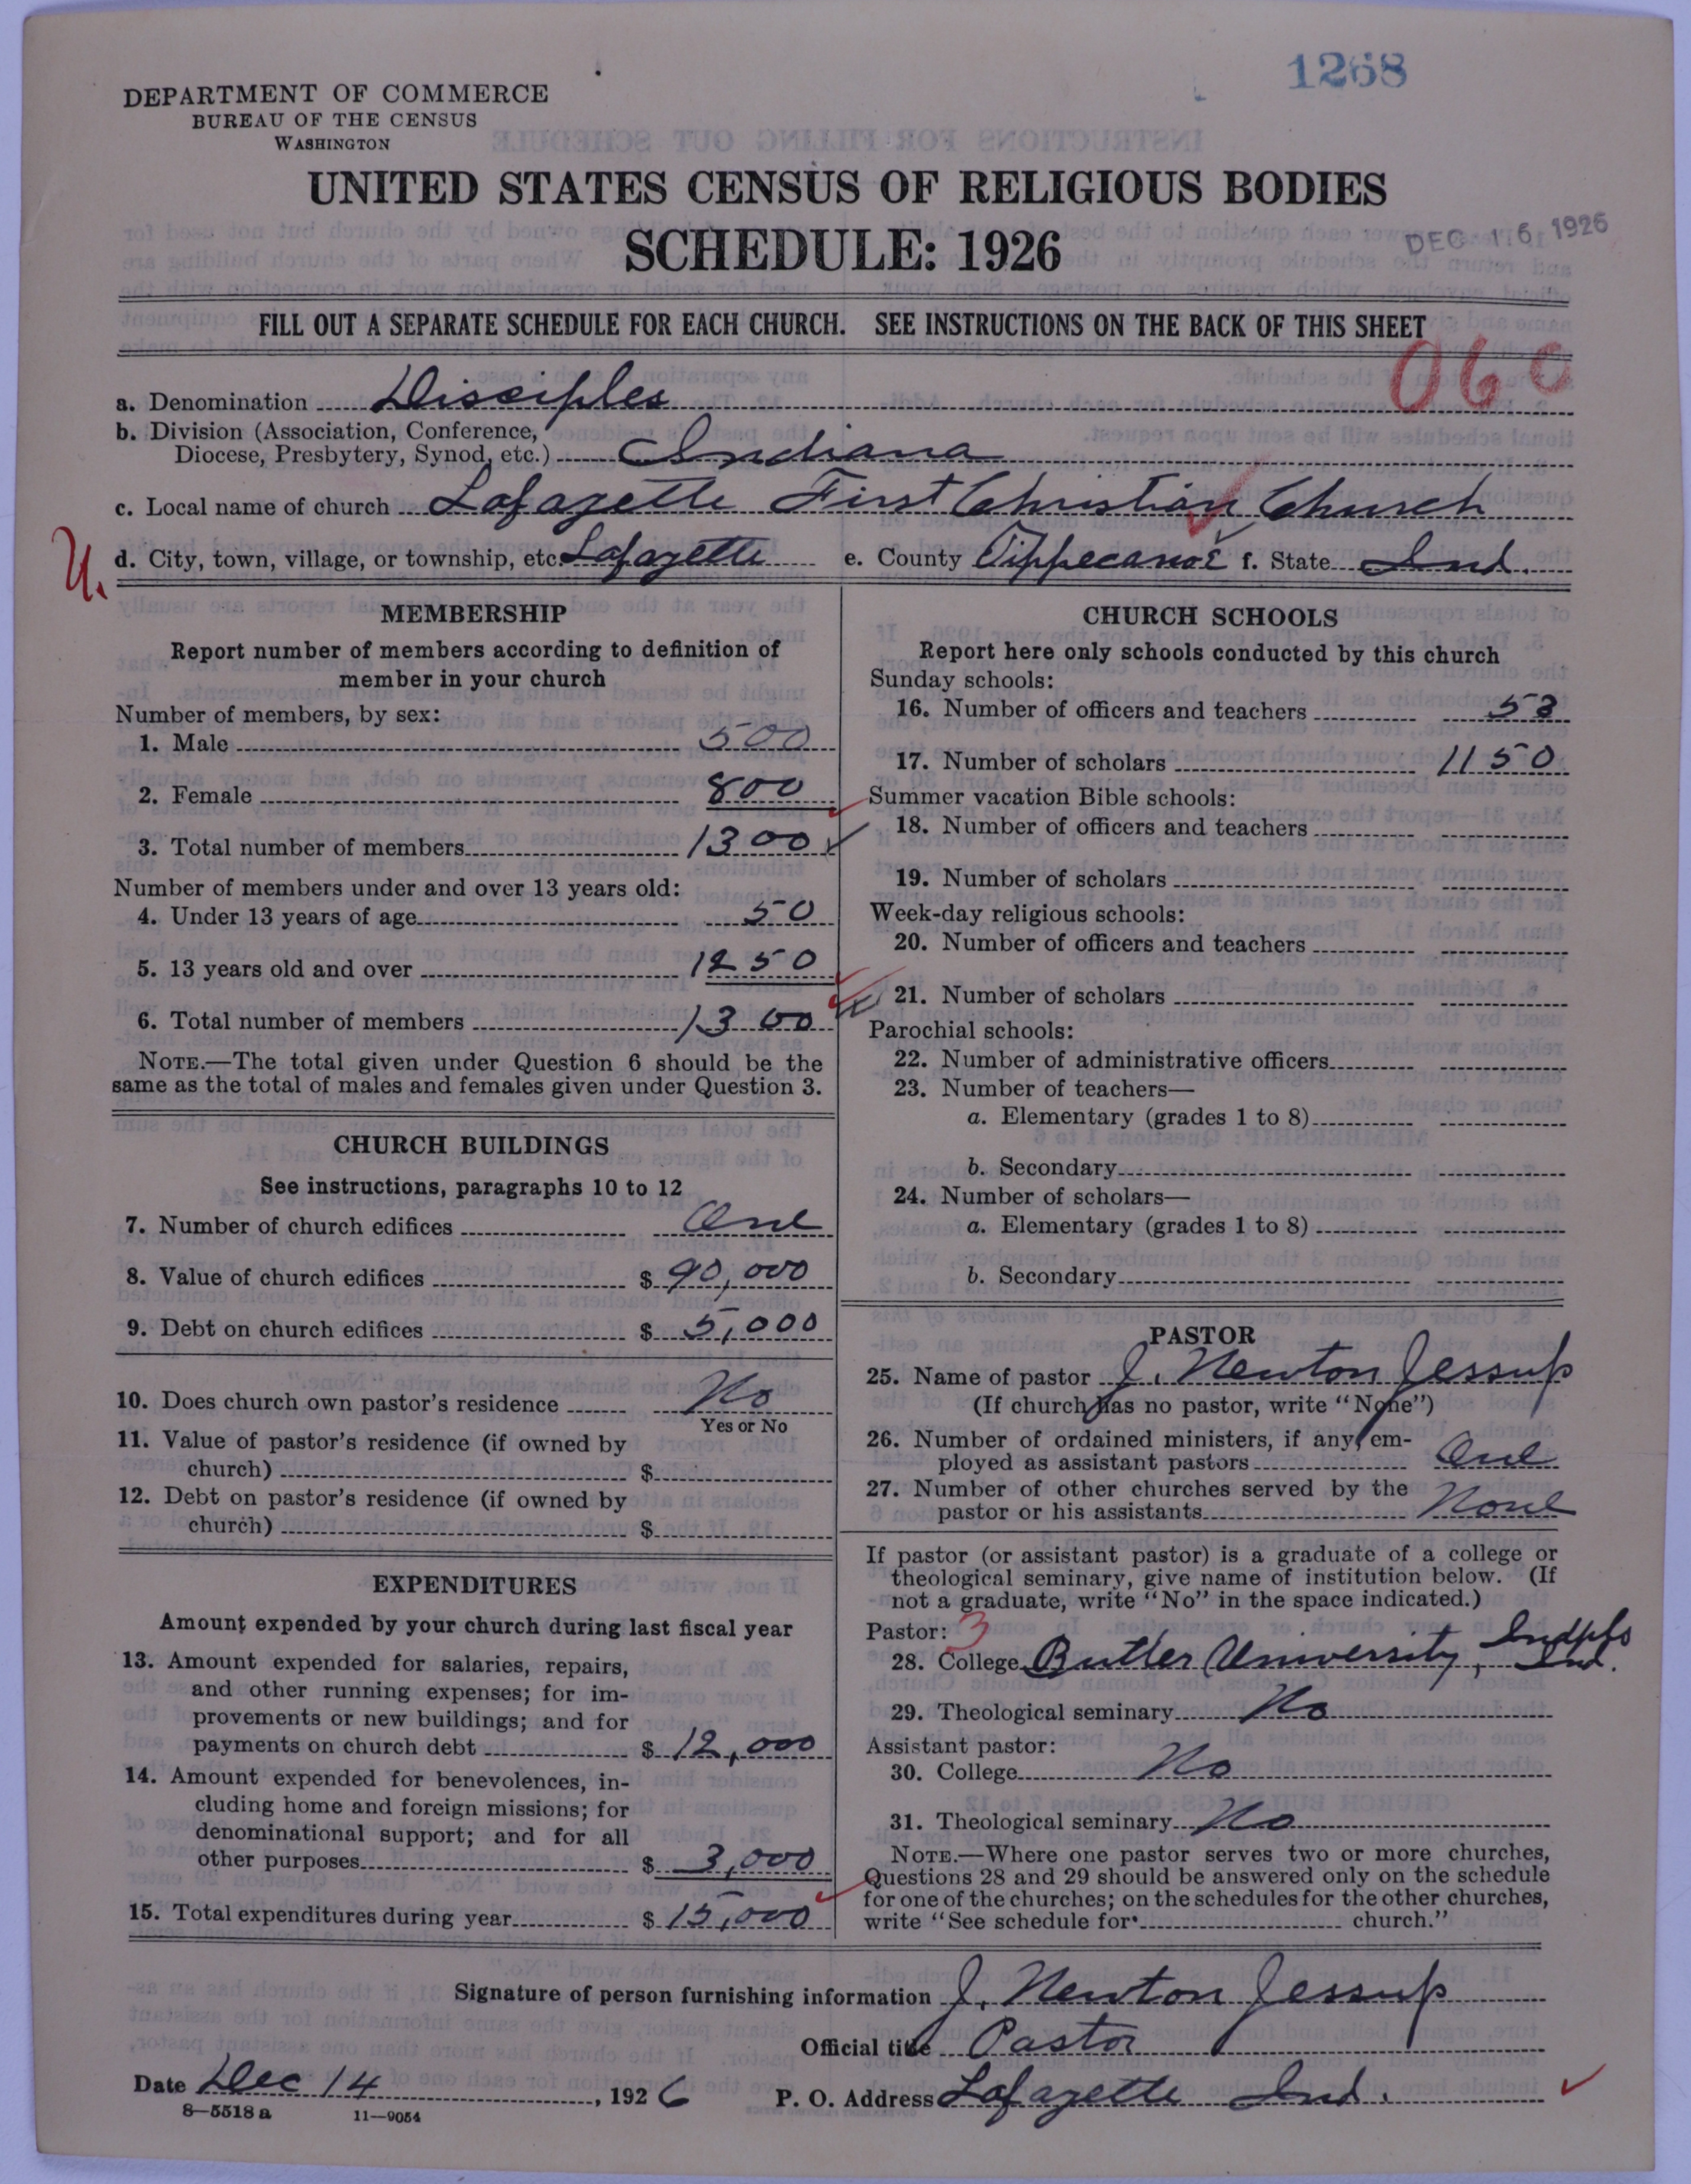 1268
DEPARTMENT OF COMMERCE
BUREAU OF THE CENSUS
WASHINGTON
UNITED STATES CENSUS OF RELIGIOUS BODIES
SCHEDULE: 1926
DEC 16 1926
FILL OUT A SEPARATE SCHEDULE FOR EACH CHURCH. SEE INSTRUCTIONS ON THE BACK OF THIS SHEET
060
a. Denomination Disciples
b. Division (Association, Conference,
Diocese, Presbytery, Synod, etc.) Indiana
c. Local name of church Lafayette First Christian Church
d. City, town, village, or township, etc. Lafayette e. County Tippecanoe f. State Ind.
MEMBERSHIP
Report number of members according to definition of
member in your church
Number of members, by sex:
1. Male 500
2. Female 800
3. Total number of members 1300
Number of members under and over 13 years old:
4. Under 13 years of age 50
5. 13 years old and over 1250
6. Total number of members 1300
NOTE.—The total given under Question 6 should be the
same as the total of males and females given under Question 3.
CHURCH BUILDINGS
See instructions, paragraphs 10 to 12
7. Number of church edifices One
8. Value of church edifices $ 90,000
9. Debt on church edifices $ 5,000
10. Does church own pastor's residence No
Yes or No
11. Value of pastor's residence (if owned by
church) $
12. Debt on pastor's residence (if owned by
church) $
EXPENDITURES
Amount expended by your church during last fiscal year
13. Amount expended for salaries, repairs,
and other running expenses; for im-
provements or new buildings; and for
payments on church debt $ 12,000
14. Amount expended for benevolences, in-
cluding home and foreign missions; for
denominational support; and for all
other purposes $ 3,000
15. Total expenditures during year $ 15,000
CHURCH SCHOOLS
Report here only schools conducted by this church
Sunday schools:
16. Number of officers and teachers 53
17. Number of scholars 1150
Summer vacation Bible schools:
18. Number of officers and teachers
19. Number of scholars
Week-day religious schools:
20. Number of officers and teachers
21. Number of scholars
Parochial schools:
22. Number of administrative officers
23. Number of teachers—
a. Elementary (grades 1 to 8)
b. Secondary
24. Number of scholars—
a. Elementary (grades 1 to 8)
b. Secondary
PASTOR
25. Name of pastor J. Newton Jessup
(If church has no pastor, write "None")
26. Number of ordained ministers, if any, em-
ployed as assistant pastors One
27. Number of other churches served by the
pastor or his assistants None
If pastor (or assistant pastor) is a graduate of a college or
theological seminary, give name of institution below. (If
not a graduate, write "No" in the space indicated.)
Pastor: 3
28. College Butler University, Indpls Ind.
29. Theological seminary No
Assistant pastor:
30. College No
31. Theological seminary No
NOTE.—Where one pastor serves two or more churches,
Questions 28 and 29 should be answered only on the schedule
for one of the churches; on the schedules for the other churches,
write "See schedule for church."
Signature of person furnishing information J. Newton Jessup
Official title Pastor
Date Dec 14, 1926 P. O. Address Lafayette Ind.
8—5518 a 11—9054